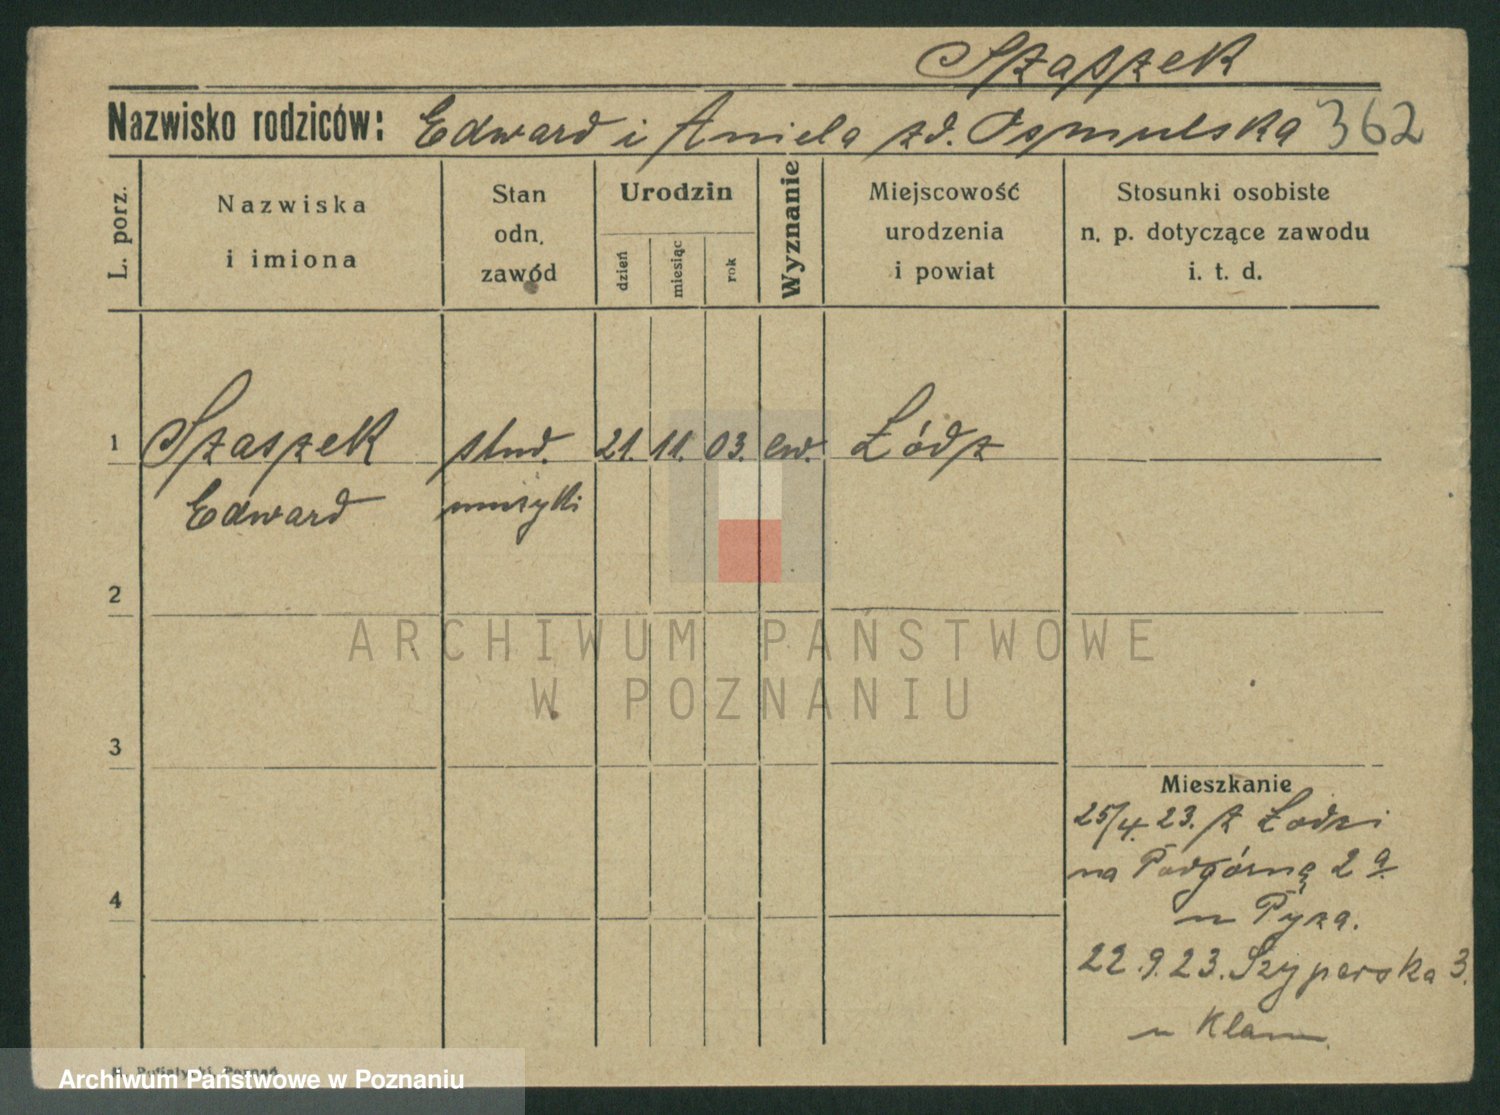 Szaszek
Nazwisko rodziców: Edward i Aniela zd. Osmulska 362
L. porz.
Nazwiska
i imiona
Stan
odn.
zawód
Urodzin
dzień
miesiąc
rok
Wyznanie
Miejscowość
urodzenia
i powiat
Stosunki osobiste
n. p. dotyczące zawodu
i. t. d.
1 Szaszek stud. 21. 11. 03. ew. Łódz
Edward muzyki
2
ARCHIWUM PAŃSTWOWE
W POZNANIU
3
Mieszkanie
25/4. 23. z Łodzi
na Podgórną 2 a.
4
u Pyza.
22.9.23. Szyperska 3.
u Klam
Poznań
Archiwum Państwowe w Poznaniu